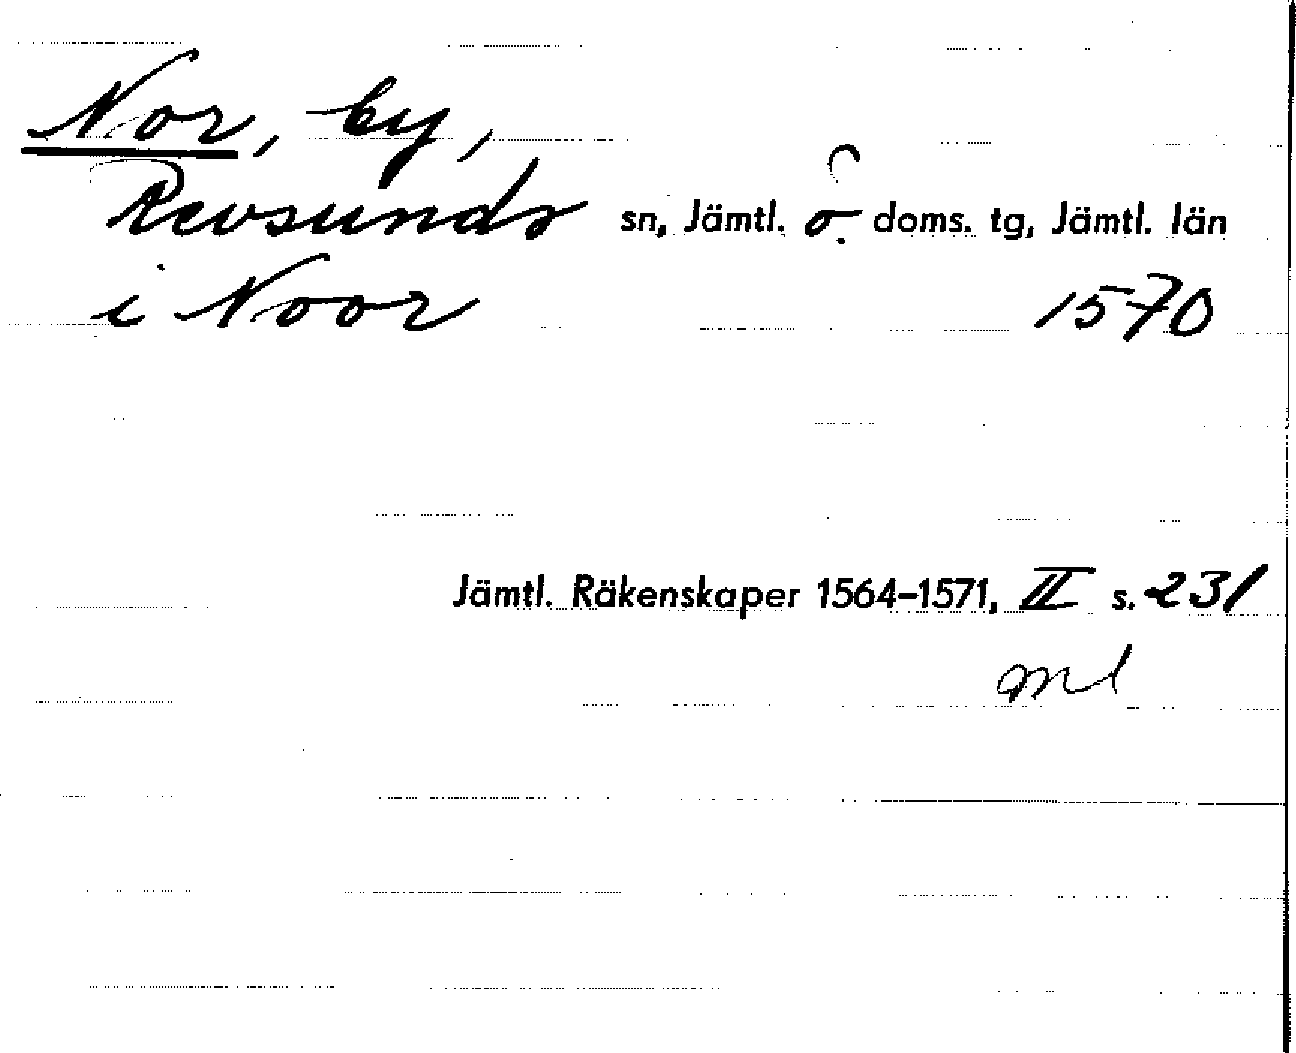 Nor, by,
Revsunds sn, Jämtl. ö. doms. tg, Jämtl. län
i Noor 1570
Jämtl. Räkenskaper 1564-1571, II s. 231
ml